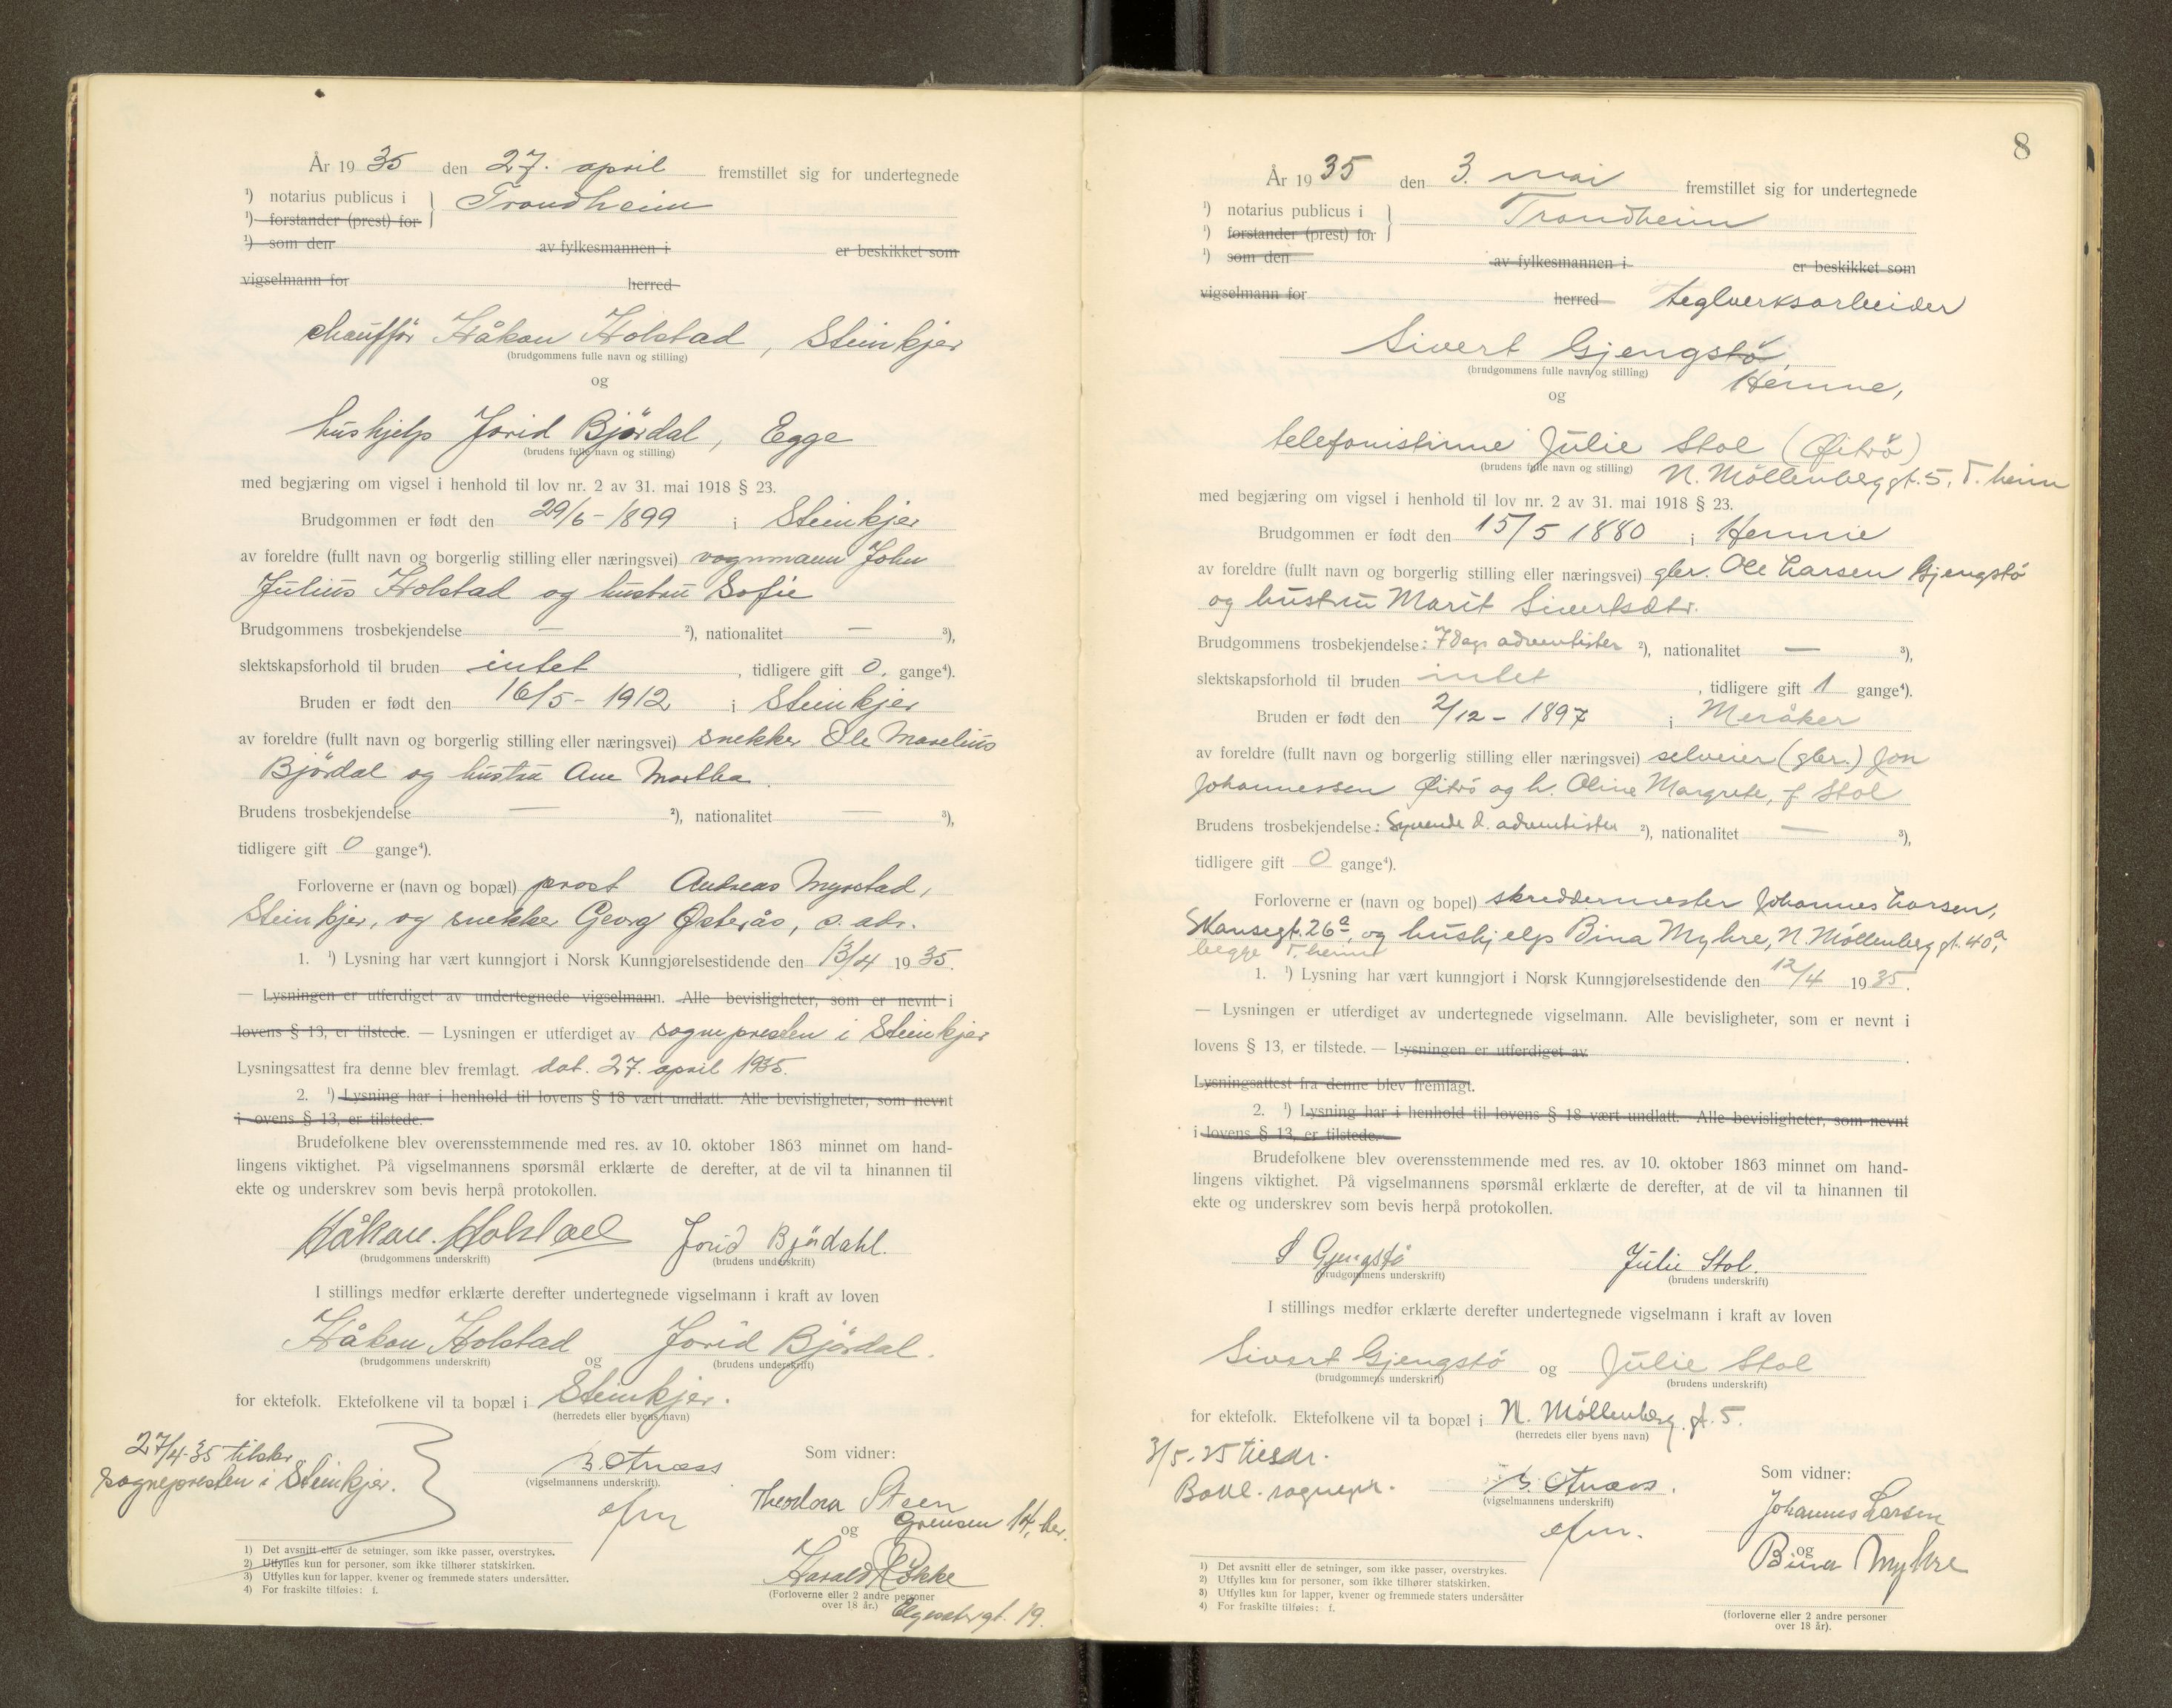 År 1935 den 27. april fremstillet sig for undertegnede
¹) notarius publicus i } Trondheim
¹) forstander (prest) for
¹) som den av fylkesmannen i er beskikket som
vigselmann for herred
chauffør Håkon Holstad, Steinkjer
(brudgommens fulle navn og stilling)
og
hushjelp Jorid Bjørdal, Egge
(brudens fulle navn og stilling)
med begjæring om vigsel i henhold til lov nr. 2 av 31. mai 1918 § 23.
Brudgommen er født den 29/6-1899 i Steinkjer
av foreldre (fullt navn og borgerlig stilling eller næringsvei) vognmann John
Julius Holstad og hustru Sofie
Brudgommens trosbekjendelse — ²), nationalitet — ³),
slektskapsforhold til bruden intet, tidligere gift 0. gange⁴).
Bruden er født den 16/5-1912 i Steinkjer
av foreldre (fullt navn og borgerlig stilling eller næringsvei) snekker Ole Marelius
Bjørdal og hustru Ane Martha.
Brudens trosbekjendelse — ²), nationalitet — ³),
tidligere gift 0 gange⁴).
Forloverne er (navn og bopæl) prost Andreas Myrstad,
Steinkjer, og snekker Georg Østerås, s. adr.
1. ¹) Lysning har vært kunngjort i Norsk Kunngjørelsestidende den 13/4 1935.
— Lysningen er utferdiget av undertegnede vigselmann. Alle bevisligheter, som er nevnt i
lovens § 13, er tilstede. — Lysningen er utferdiget av sognepresten i Steinkjer
Lysningsattest fra denne blev fremlagt. dat. 27. april 1935.
2. ¹) Lysning har i henhold til lovens § 18 vært undlatt. Alle bevisligheter, som nevnt
i ovens § 13, er tilstede.
Brudefolkene blev overensstemmende med res. av 10. oktober 1863 minnet om hand-
lingens viktighet. På vigselmannens spørsmål erklærte de derefter, at de vil ta hinannen til
ekte og underskrev som bevis herpå protokollen.
Håkon Holstad Jorid Bjørdahl.
(brudgommens underskrift) (brudens underskrift)
I stillings medfør erklærte derefter undertegnede vigselmann i kraft av loven
Håkon Holstad og Jorid Bjørdal.
(brudgommens underskrift) (brudens underskrift)
for ektefolk. Ektefolkene vil ta bopæl i Steinkjer.
(herredets eller byens navn)
27/4-35 tilskr.
sognepresten i Steinkjer.
(vigselmannens underskrift).
Som vidner:
Theodora Steen
Grensen 14, her.
og
Harald Røkke
(Forloverne eller 2 andre personer
over 18 år.) Elgesetergt. 19.
1) Det avsnitt eller de setninger, som ikke passer, overstrykes.
2) Utfylles kun for personer, som ikke tilhører statskirken.
3) Utfylles kun for lapper, kvener og fremmede staters undersåtter.
4) For fraskilte tilføies: f.
8
År 1935 den 3. mai fremstillet sig for undertegnede
¹) notarius publicus i } Trondheim
¹) forstander (prest) for
¹) som den av fylkesmannen i er beskikket som
vigselmann for herred teglverksarbeider
Sivert Gjengstø,
(brudgommens fulle navn og stilling) Hemne,
og
telefonistinne Julie Stol (Øitrø)
(brudens fulle navn og stilling) N. Møllenberggt. 5, T.heim
med begjæring om vigsel i henhold til lov nr. 2 av 31. mai 1918 § 23.
Brudgommen er født den 15/5 1880 i Hemne
av foreldre (fullt navn og borgerlig stilling eller næringsvei) gbr. Ole Larsen Gjengstø
og hustru Marit Sivertsdtr.
Brudgommens trosbekjendelse: 7 dags adventister ²), nationalitet — ³),
slektskapsforhold til bruden intet, tidligere gift 1 gange⁴).
Bruden er født den 2/12-1897 i Meråker
av foreldre (fullt navn og borgerlig stilling eller næringsvei) selveier (gbr.) Jon
Johannessen Øitrø og h. Oline Margrete, f Stol
Brudens trosbekjendelse: Syvende d. adventister ²), nationalitet — ³),
tidligere gift 0 gange⁴).
Forloverne er (navn og bopel) skreddermester Johannes Larsen,
Skansegt. 26ª, og hushjelp Bina Myhre, N. Møllenberg gt. 40ª,
begge T.heim
1. ¹) Lysning har vært kunngjort i Norsk Kunngjørelsestidende den 12/4 1935.
— Lysningen er utferdiget av undertegnede vigselmann. Alle bevisligheter, som er nevnt i
lovens § 13, er tilstede. — Lysningen er utferdiget av
Lysningsattest fra denne blev fremlagt.
2. ¹) Lysning har i henhold til lovens § 18 vært undlatt. Alle bevisligheter, som nevnt
i lovens § 13, er tilstede.
Brudefolkene blev overensstemmende med res. av 10. oktober 1863 minnet om hand-
lingens viktighet. På vigselmannens spørsmål erklærte de derefter, at de vil ta hinannen til
ekte og underskrev som bevis herpå protokollen.
S Gjengstø Julie Stol.
(brudgommens underskrift) (brudens underskrift)
I stillings medfør erklærte derefter undertegnede vigselmann i kraft av loven
Sivert Gjengstø og Julie Stol
(brudgommens underskrift) (brudens underskrift)
for ektefolk. Ektefolkene vil ta bopæl i N. Møllenberg. gt. 5.
(herredets eller byens navn)
3/5-35 tilskr.
Bakl. sognepr.
(vigselmannens underskrift)
Som vidner:
Johannes Larsen
og
Bina Myhre
(forloverne eller 2 andre personer
over 18 år).
1) Det avsnitt eller de setninger, som ikke passer, overstrykes.
2) Utfylles kun for personer, som ikke tilhører statskirken.
3) Utfylles kun for lapper, kvener og fremmede staters undersåtter
4) For fraskilte tilføies: f.